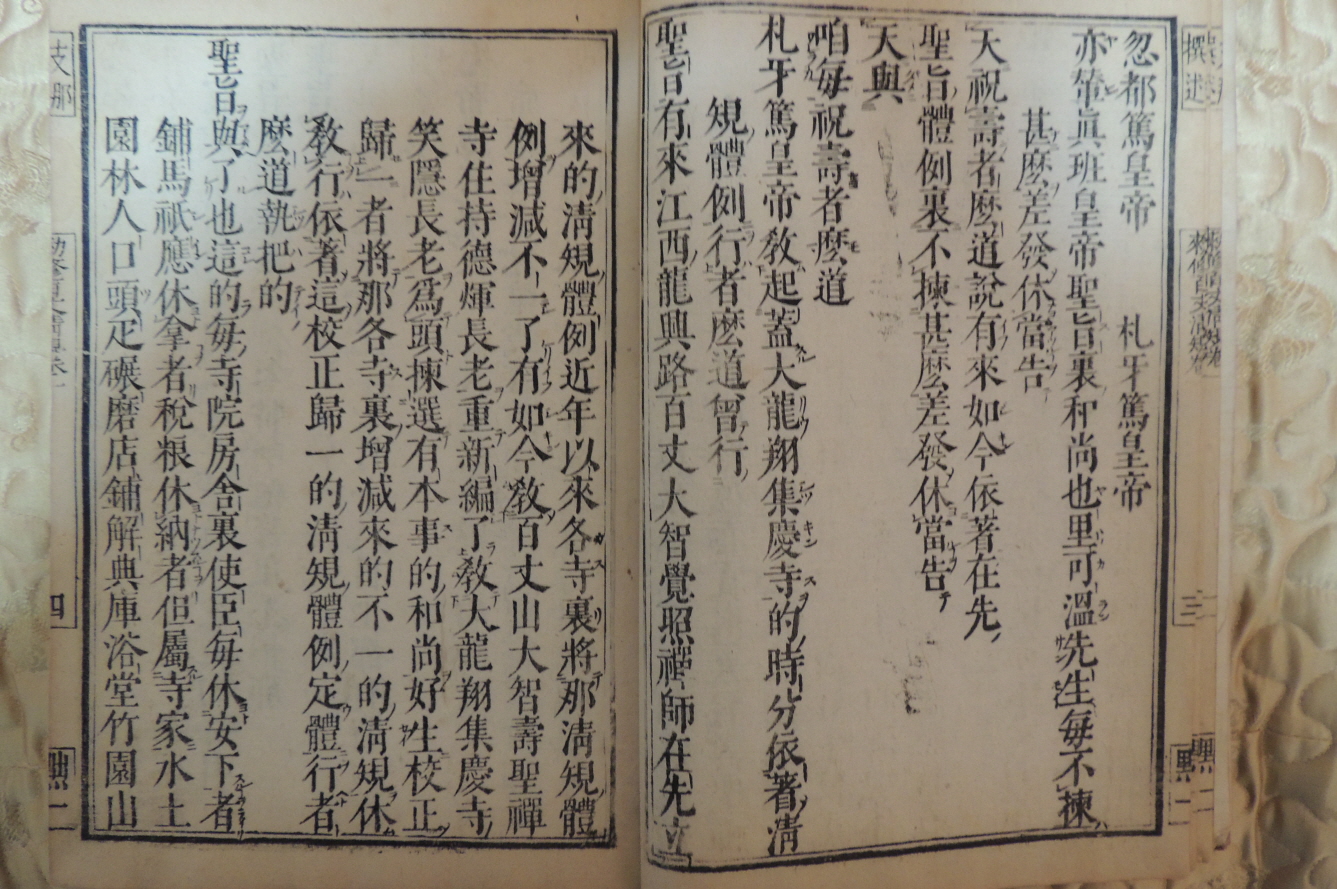 忽都篤皇帝　札牙篤皇帝
亦輦眞班皇帝聖旨裏和尚也里可溫先生每不揀
甚麽差發休當告
天祝壽者麽道說有來如今依著在先
聖旨體例裏不揀甚麽差發休當告
天與
咱每祝壽者麽道
札牙篤皇帝敎起蓋大龍翔集慶寺的時分依著淸
規體例行者麽道曾行
聖旨有來江西龍興路百丈大智覺照禪師在先立
來的淸規體例近年以來各寺裏將那淸規體
例增減不一了有如今敎百丈山大智壽聖禪
寺住持德煇長老重新編了敎大龍翔集慶寺
笑隱長老爲頭揀選有本事的和尚好生校正
歸一者將那各寺裏增減來的不一的淸規休
敎行依著這校正歸一的淸規體例定體行者
麽道執把的
聖旨與了也這的每寺院房舍裏使臣每休安下者
鋪馬祇應休拿者稅粮休納者但屬寺家水土
園林人口頭疋碾磨店鋪解典庫浴堂竹園山
支那
四